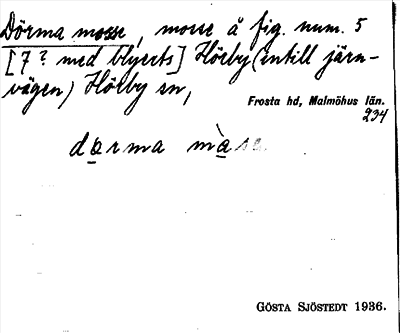 Dörma mosse, mosse å fig. num. 5
[7? med blyerts] Hörby (intill järn-
vägen) Hörby sn,
Frosta hd, Malmöhus län.
234
darma màsa
GÖSTA SJÖSTEDT 1936.